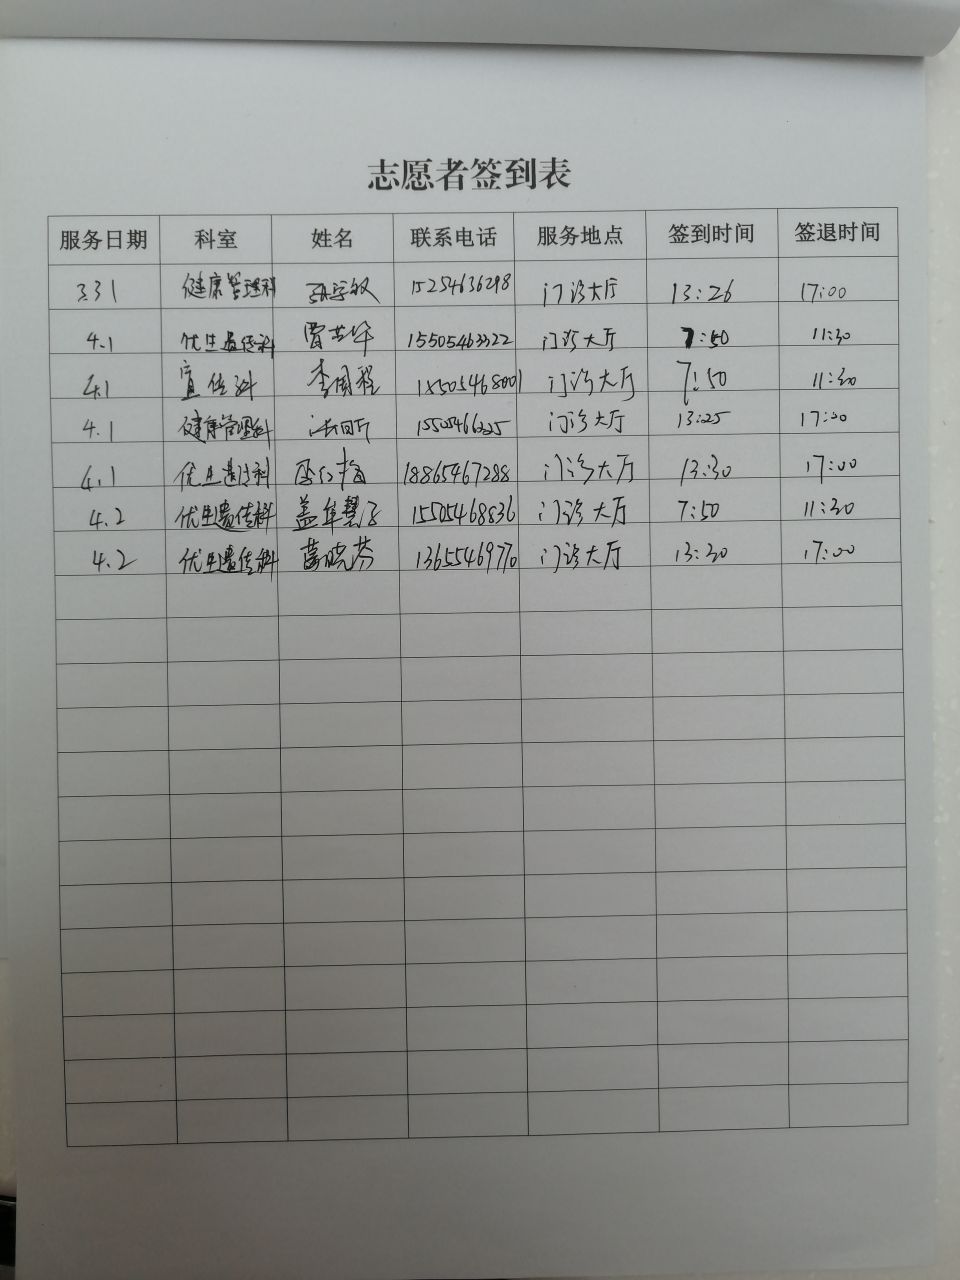 志愿者签到表
服务日期 科室 姓名 联系电话 服务地点 签到时间 签退时间
331 健康管理科 15254636298 门诊大厅 13:26 17:00
4.1 优生遗传科 15505463322 门诊大厅 7:50 11:30
4.1 宣传科 李国程 18505468001 门诊大厅 7:50 11:30
4.1 健康管理科 门诊大厅 13:25 17:00
4.1 优生遗传科 18865467288 门诊大厅 13:30 17:00
4.2 优生遗传科 15505468836 门诊大厅 7:50 11:30
4.2 优生遗传科 葛晓芬 13655469770 门诊大厅 13:30 17:00